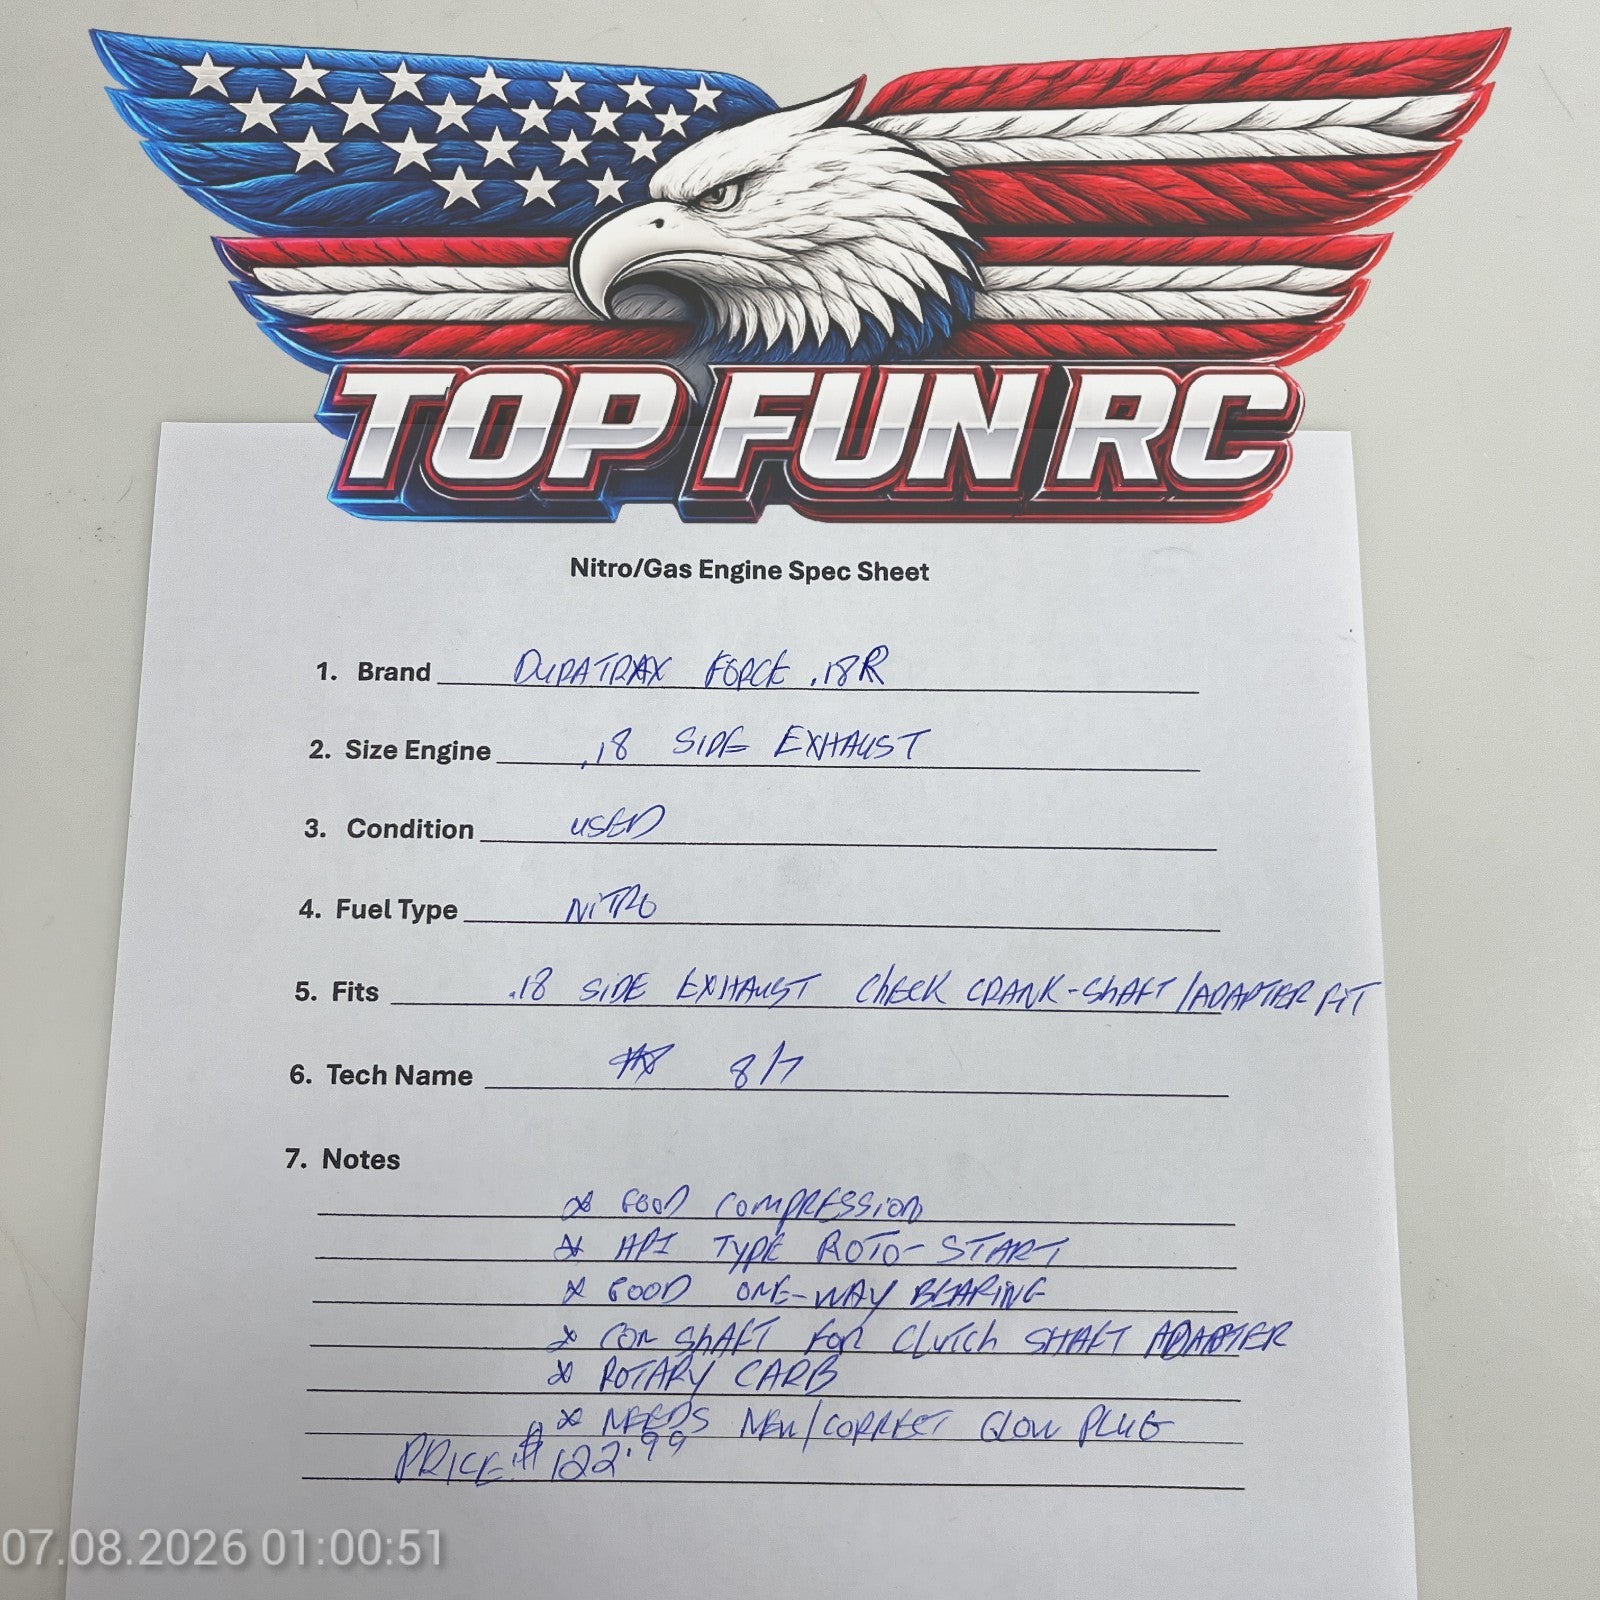 TOP FUN RC
Nitro/Gas Engine Spec Sheet
1. Brand DURATRAX FORCE .18R
2. Size Engine .18 SIDE EXHAUST
3. Condition USED
4. Fuel Type NiTRO
5. Fits .18 SIDE EXHAUST ChECK CRANK-ShAFT/ADAPTER FiT
6. Tech Name 8/7
7. Notes
* GOOD COMPRESSION
* HPI TYPE ROTO-START
* GOOD ONE-WAY BEARING
* ShAFT FOR CLUTCh SHAFT ADAPTER
* ROTARY CARB
* NEEDS NEW/CORRECT GLOW PLUG
PRICE: $122.99
07.08.2026 01:00:51